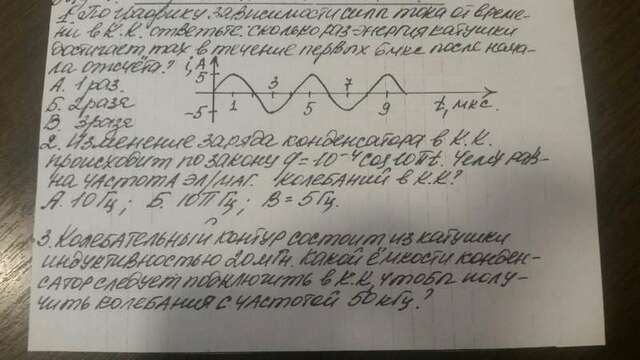 1. По графику зависимости силы тока от време-
ни в К.К. ответьте сколько раз энергия катушки
достигает max в течение первых 6 мкс после нача-
ла отсчёта?
А. 1 раз.
Б. 2 раза
В. 3 раза
i, А
5
-5
1 3 5 7 9 t, мкс.
2. Изменение заряда конденсатора в К.К.
происходит по закону q = 10⁻⁴ cos 10πt. Чему рав-
на частота эл/маг. колебаний в К.К?
А. 10 Гц; Б. 10π Гц; В = 5 Гц.
3. Колебательный контур состоит из катушки
индуктивностью 20 мГн. Какой ёмкости конден-
сатор следует подключить в К.К, чтобы полу-
чить колебания с частотой 50 кГц?